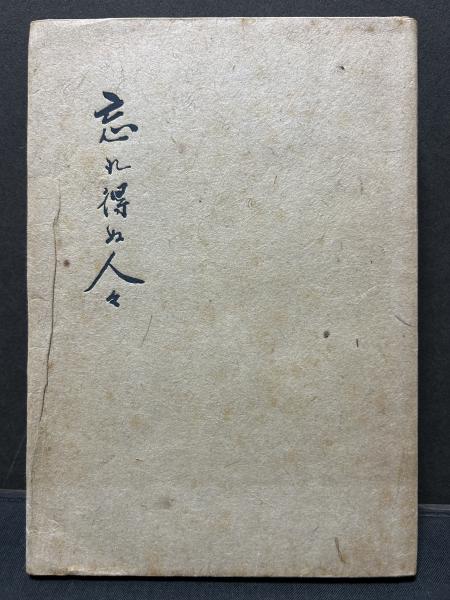 忘れ得ぬ人々